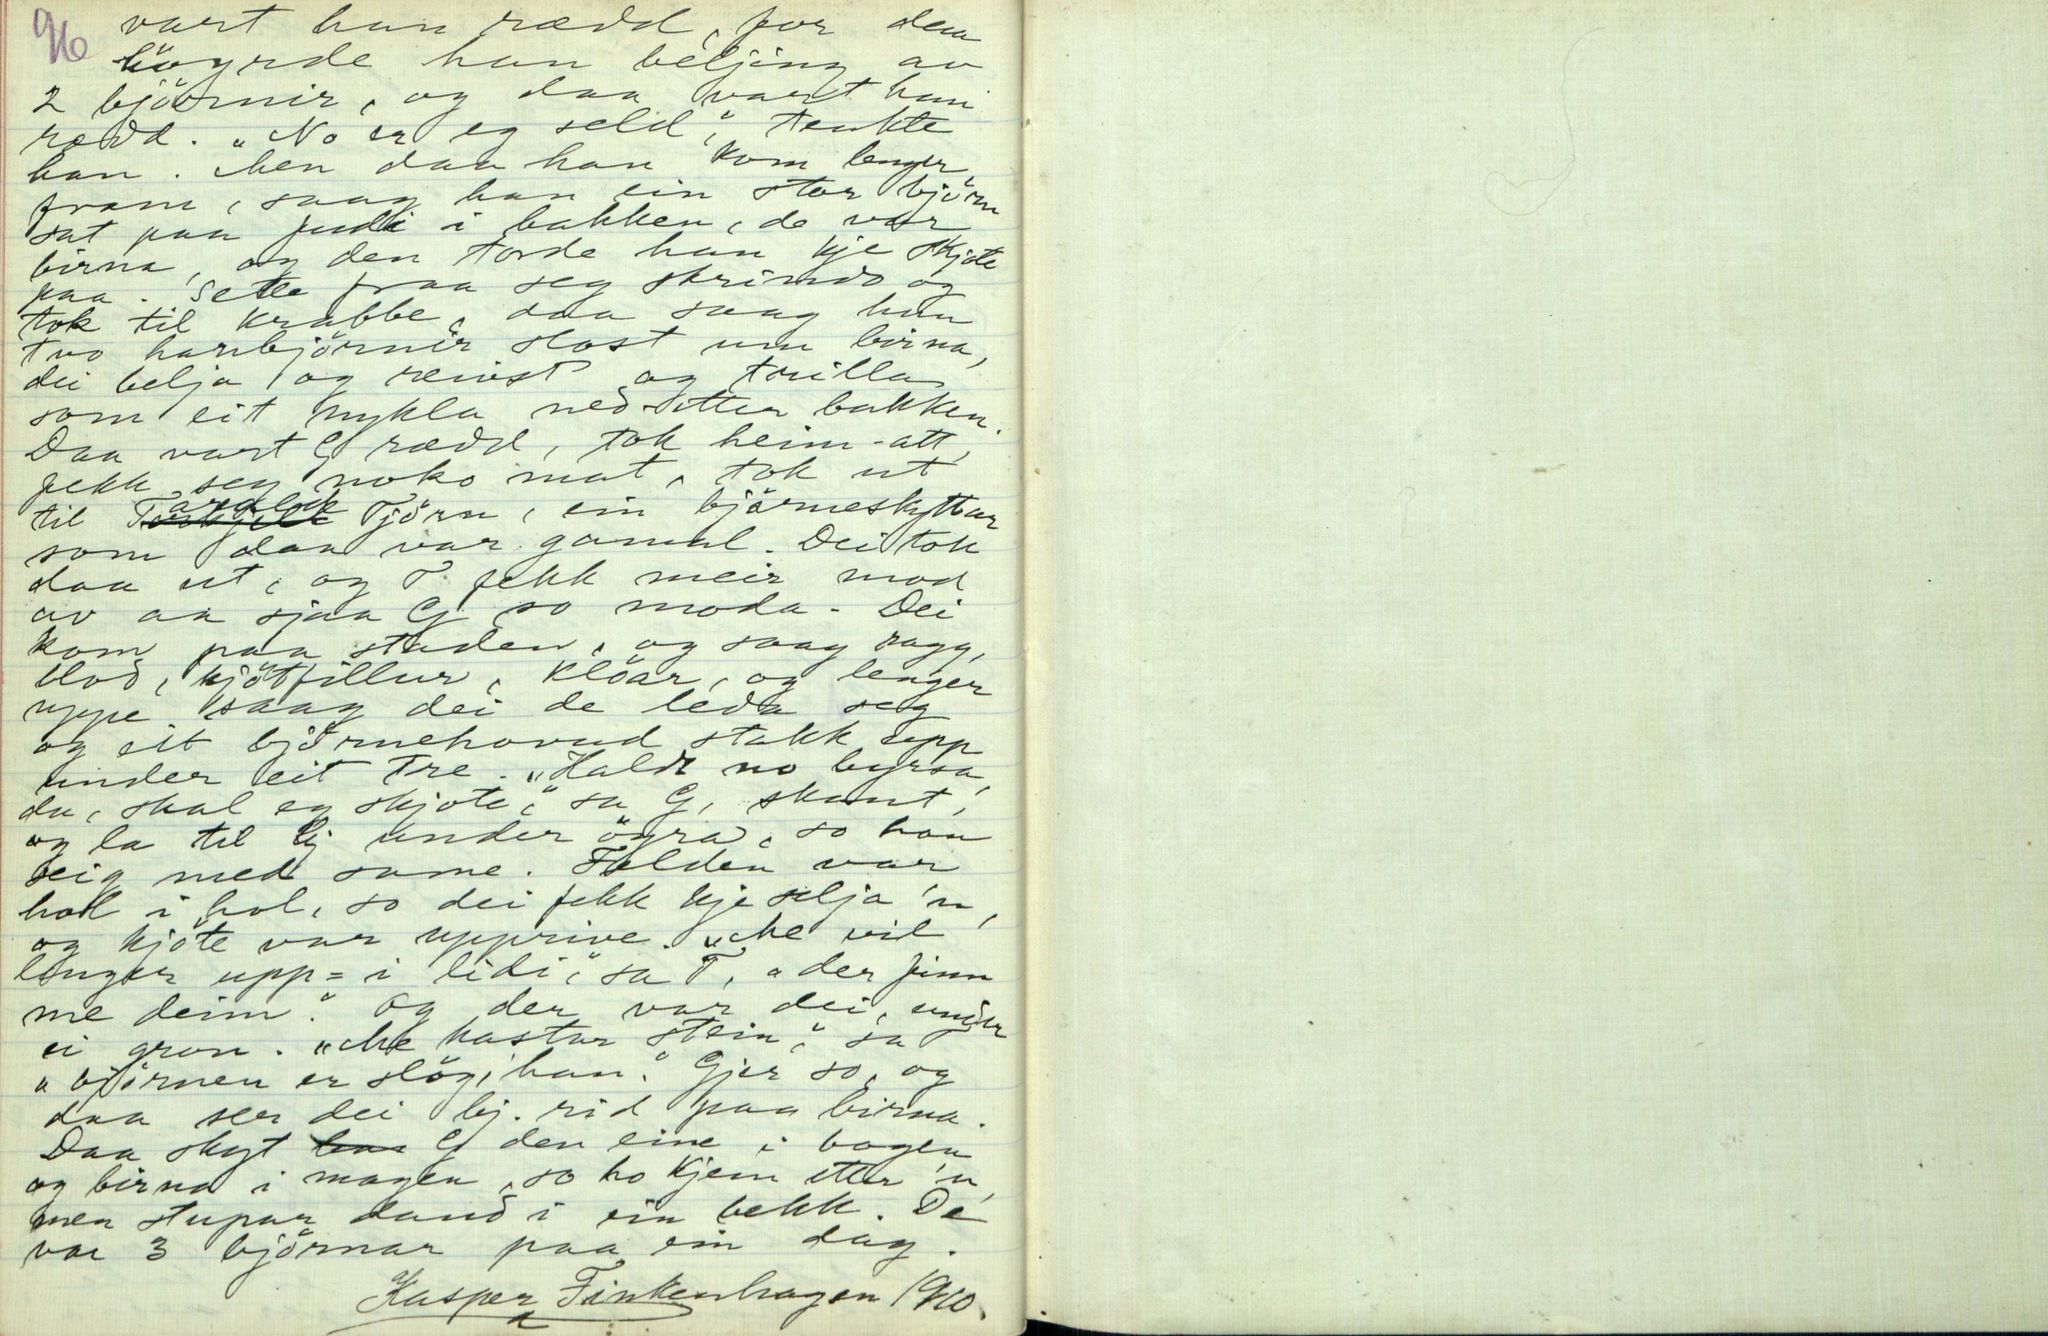 96
vart han rædd, for dem
höyrde han beljing av
2 björnir, og daa vart han
rædd. "No er eg seld", tenkte
han. Men daa han kom lenger
fram, saag han ein stor björn
sat paa judi i bakken, de var
birna, og den torde han kje skjote
paa. Sette fraa seg skrindo og
tok til krabbe, daa saag han
tvo hanbjörnir slost um birna,
dei belja og reivst og trilla
som eit nykla ned-etter bakken.
Daa vart G rædd, tok heim-att,
fekk seg noko mat, tok ut
til Targjek Tjörn, ein björneskyttar
som daa var gamal. Dei tok
daa ut, og T fekk meir mod
av aa sjaa G so moda. Dei
kom paa staden, og saag ragg,
blod, kjötfillur, klöar, og lenger
uppe saag dei de leda seg
og eit björnehovud stakk upp
under eit tre. "Haldt no byrsa,
du, skal eg skjote", sa G, skaut,
og la til bj under öyra, so han
seig med same. Felden var
hol i hol, so dei fekk kje selja 'n,
og kjöte var upprive. "Me vil
lenger upp= i lidi", sa T, "der finn
me deim." Og der var dei, under
ei gron. "Me kastar stein", sa
"björnen er slög, han." Gjer so, og
daa ser dei bj. rid paa birna.
Daa skyt G den eine i bogen
og birna i magen, so ho kjem etter 'n,
men stupar daud i ein bekk. De
var 3 björnar paa ein dag.
Kasper Finkenhagen 1910.